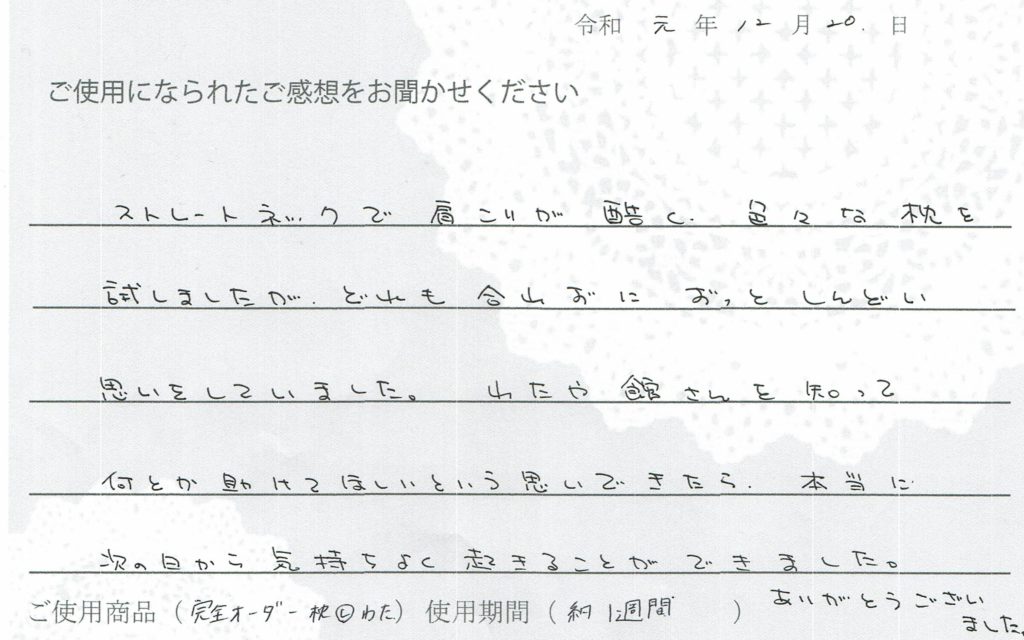 令和 元 年 12 月 20. 日
ご使用になられたご感想をお聞かせください
ストレートネックで 肩こりが 酷く、色々な枕を
試しましたが、どれも 合山ずに ずっと しんどい
思いをしていました。 わたや館さんを知って
何とか助けてほしいという思いできたら、本当に
次の日から気持ちよく起きることができました。
ご使用商品（完全オーダー枕 わた）使用期間（約1週間 ）
ありがとうござい
ました